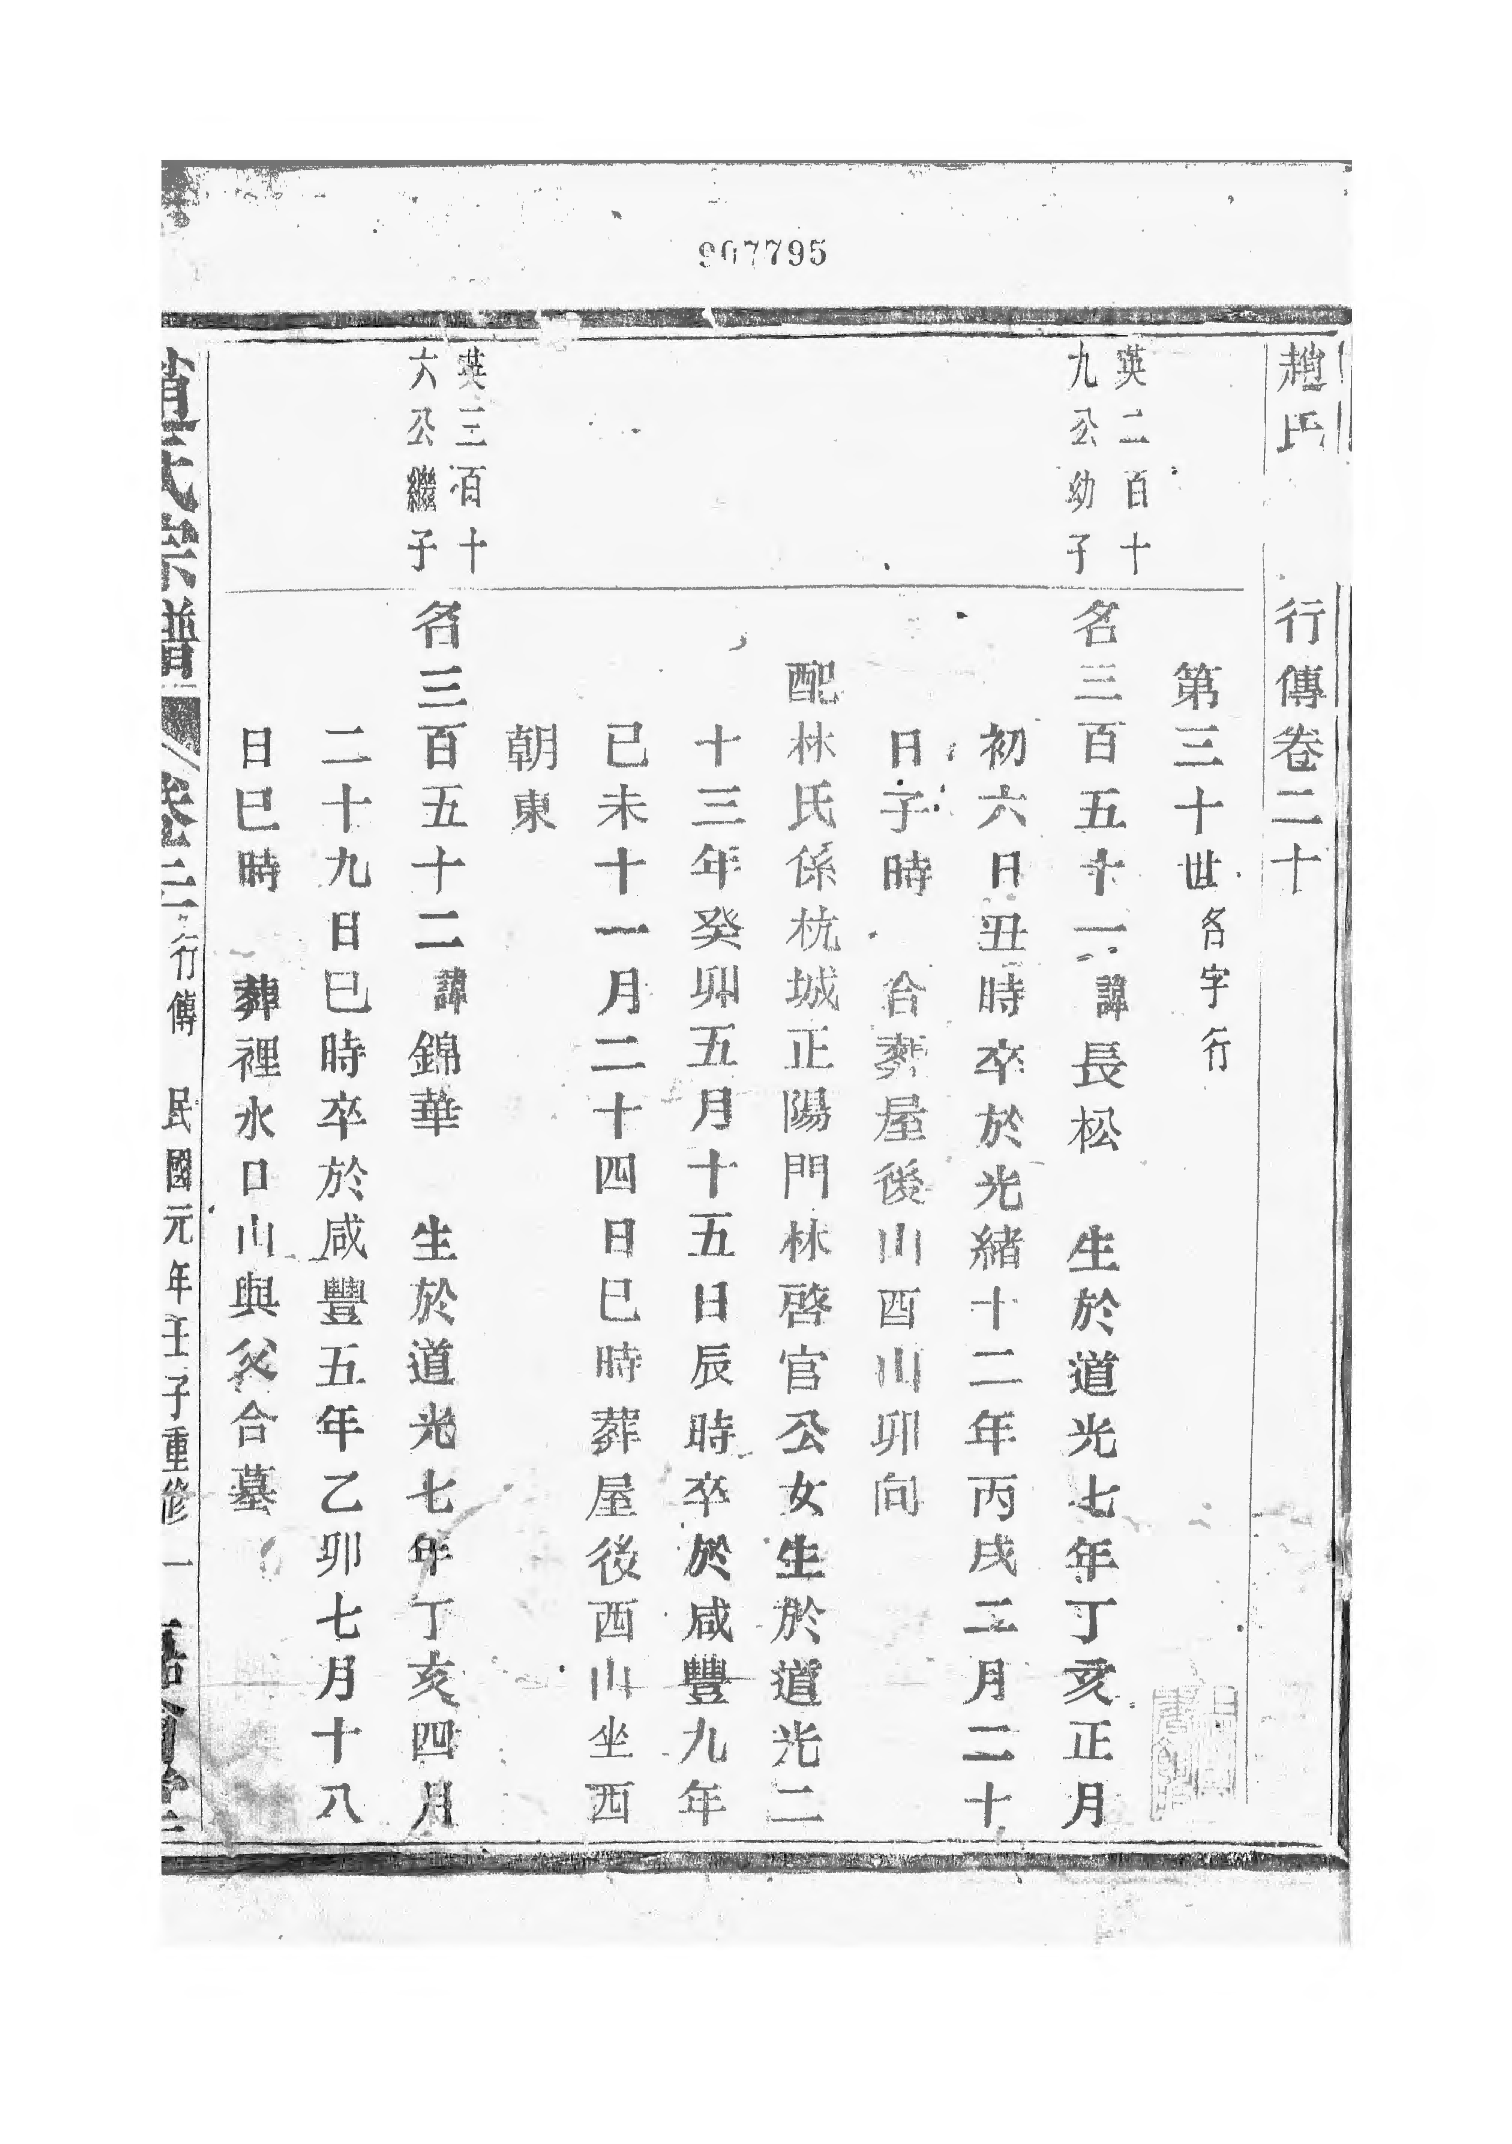 907795
趙氏　行傳卷二十
第三十世名字行
英二百十
九公幼子
名三百五十一諱長松　生於道光七年丁亥正月
初六日丑時卒於光緒十二年丙戌二月二十
日子時　合葬屋後山酉山卯向
配林氏係杭城正陽門林啓官公女生於道光二
十三年癸卯五月十五日辰時卒於咸豐九年
已未十一月二十四日巳時葬屋後西山坐西
朝東
英三百十
六公繼子
名三百五十二諱錦華　生於道光七年丁亥四月
二十九日巳時卒於咸豐五年乙卯七月十八
日巳時　葬裡水口山與父合墓
趙氏宗譜　卷二　行傳　民國元年壬子重修　一